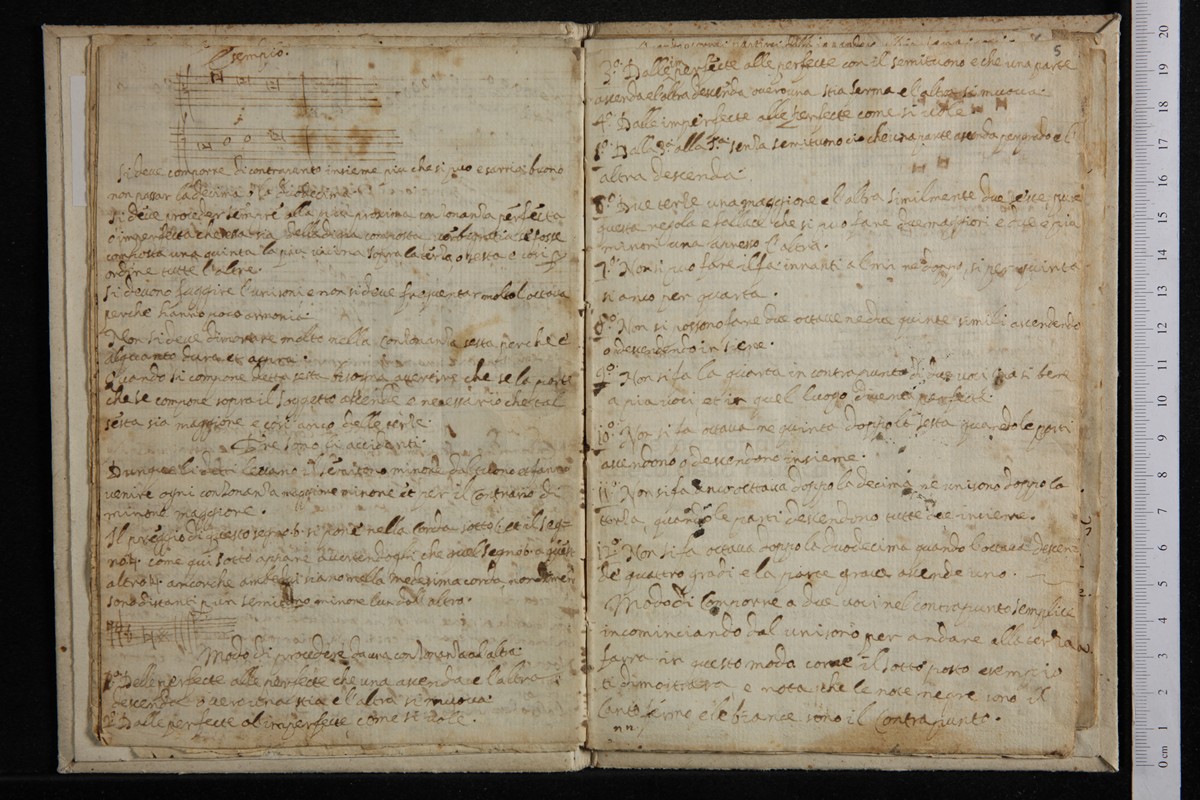 Esempio.
Si deve comporre di contramento insieme piu che si puo e sarria buono
non passar la decima
Si deve proceder sempre alla piu prossima consonanza perfetta
o imperfetta che essa sia
composta una quinta la piu vicina sopra la terza o sesta e cosi p
ordine tutte l'altre.
Si devono fuggire l'unisoni e non si deve frequentar molto l'ottava
perche hanno poco armonia.
Non si deve dimorare molto nella consonanza sesta perche è
alquanto dura et aspra.
Quando si compone detta sesta bisogna avertire che se la parte
che se compone sopra il soggetto ascende e necessario che tal
sesta sia maggiore e cosi anco delle terze.
Tre sono li accidenti.
Dunque li detti levano il semitono minore dal suono et fanno
venire ogni consonanza maggiore minore et per il contrario di
minore maggiore.
Il preggio di questo segno b. si pone nella corda sotto et il seg-
no ♮. come qui sotto appare avertendogli che quel segno b. a quest
altro ♮. ancorche ambedui siano nella medesima corda nondimen
sono distanti p un semitono minore l'un dall'altro.
Modo di procedere da una consonanza al'altra.
1.º Dalle perfecte alle perfecte che una ascenda e l'altra
descenda o vero una stia e l'altra si muova.
2.º Dalle perfecte al imperfecte come si vole.
5
3.º Dalle imperfecte alle perfecte con il semituono e che una parte
ascenda e l'altra descenda overo una stia ferma e l'altra si muova.
4.º Dalle imperfecte alle perfecte come si vole
5.º Dalla 3ª alla 5ª senza semituono cio che una parte ascenda e l'
altra descenda.
6.º Due terze una maggiore e l'altra similmente due seste pure
questa regola è fallace che si puo fare due maggiori e due e piu
minori una appresso l'altra.
7.º Non si puo fare il fa innanti al mi ne doppo, si per quinta
si anco per quarta.
8.º Non si possono fare due octave ne due quinte simili ascendendo
o descendendo insieme.
9.º Non si fa la quarta in contrapunto di due voci ma si bene
a piu voci et in quel luogo diventa perfecta.
10.º Non si fa octava ne quinta doppo la sesta quando le parti
ascendono o descendono insieme.
11.º Non si fa anco octava doppo la decima ne unisono doppo la
terza, quando le parti descendono tutte dee insieme.
12.º Non si fa octava doppo la duodecima quando l'octava descen-
de quattro gradi e la parte grave ascende uno.
Modo di comporre a due voci nel contrapunto semplice
incominciando dal unisono per andare alla terza
farra in questo modo come il sotto posto esempio
te dimostrara, e nota che le note negre sono il
canto fermo e le biance sono il contrapunto.